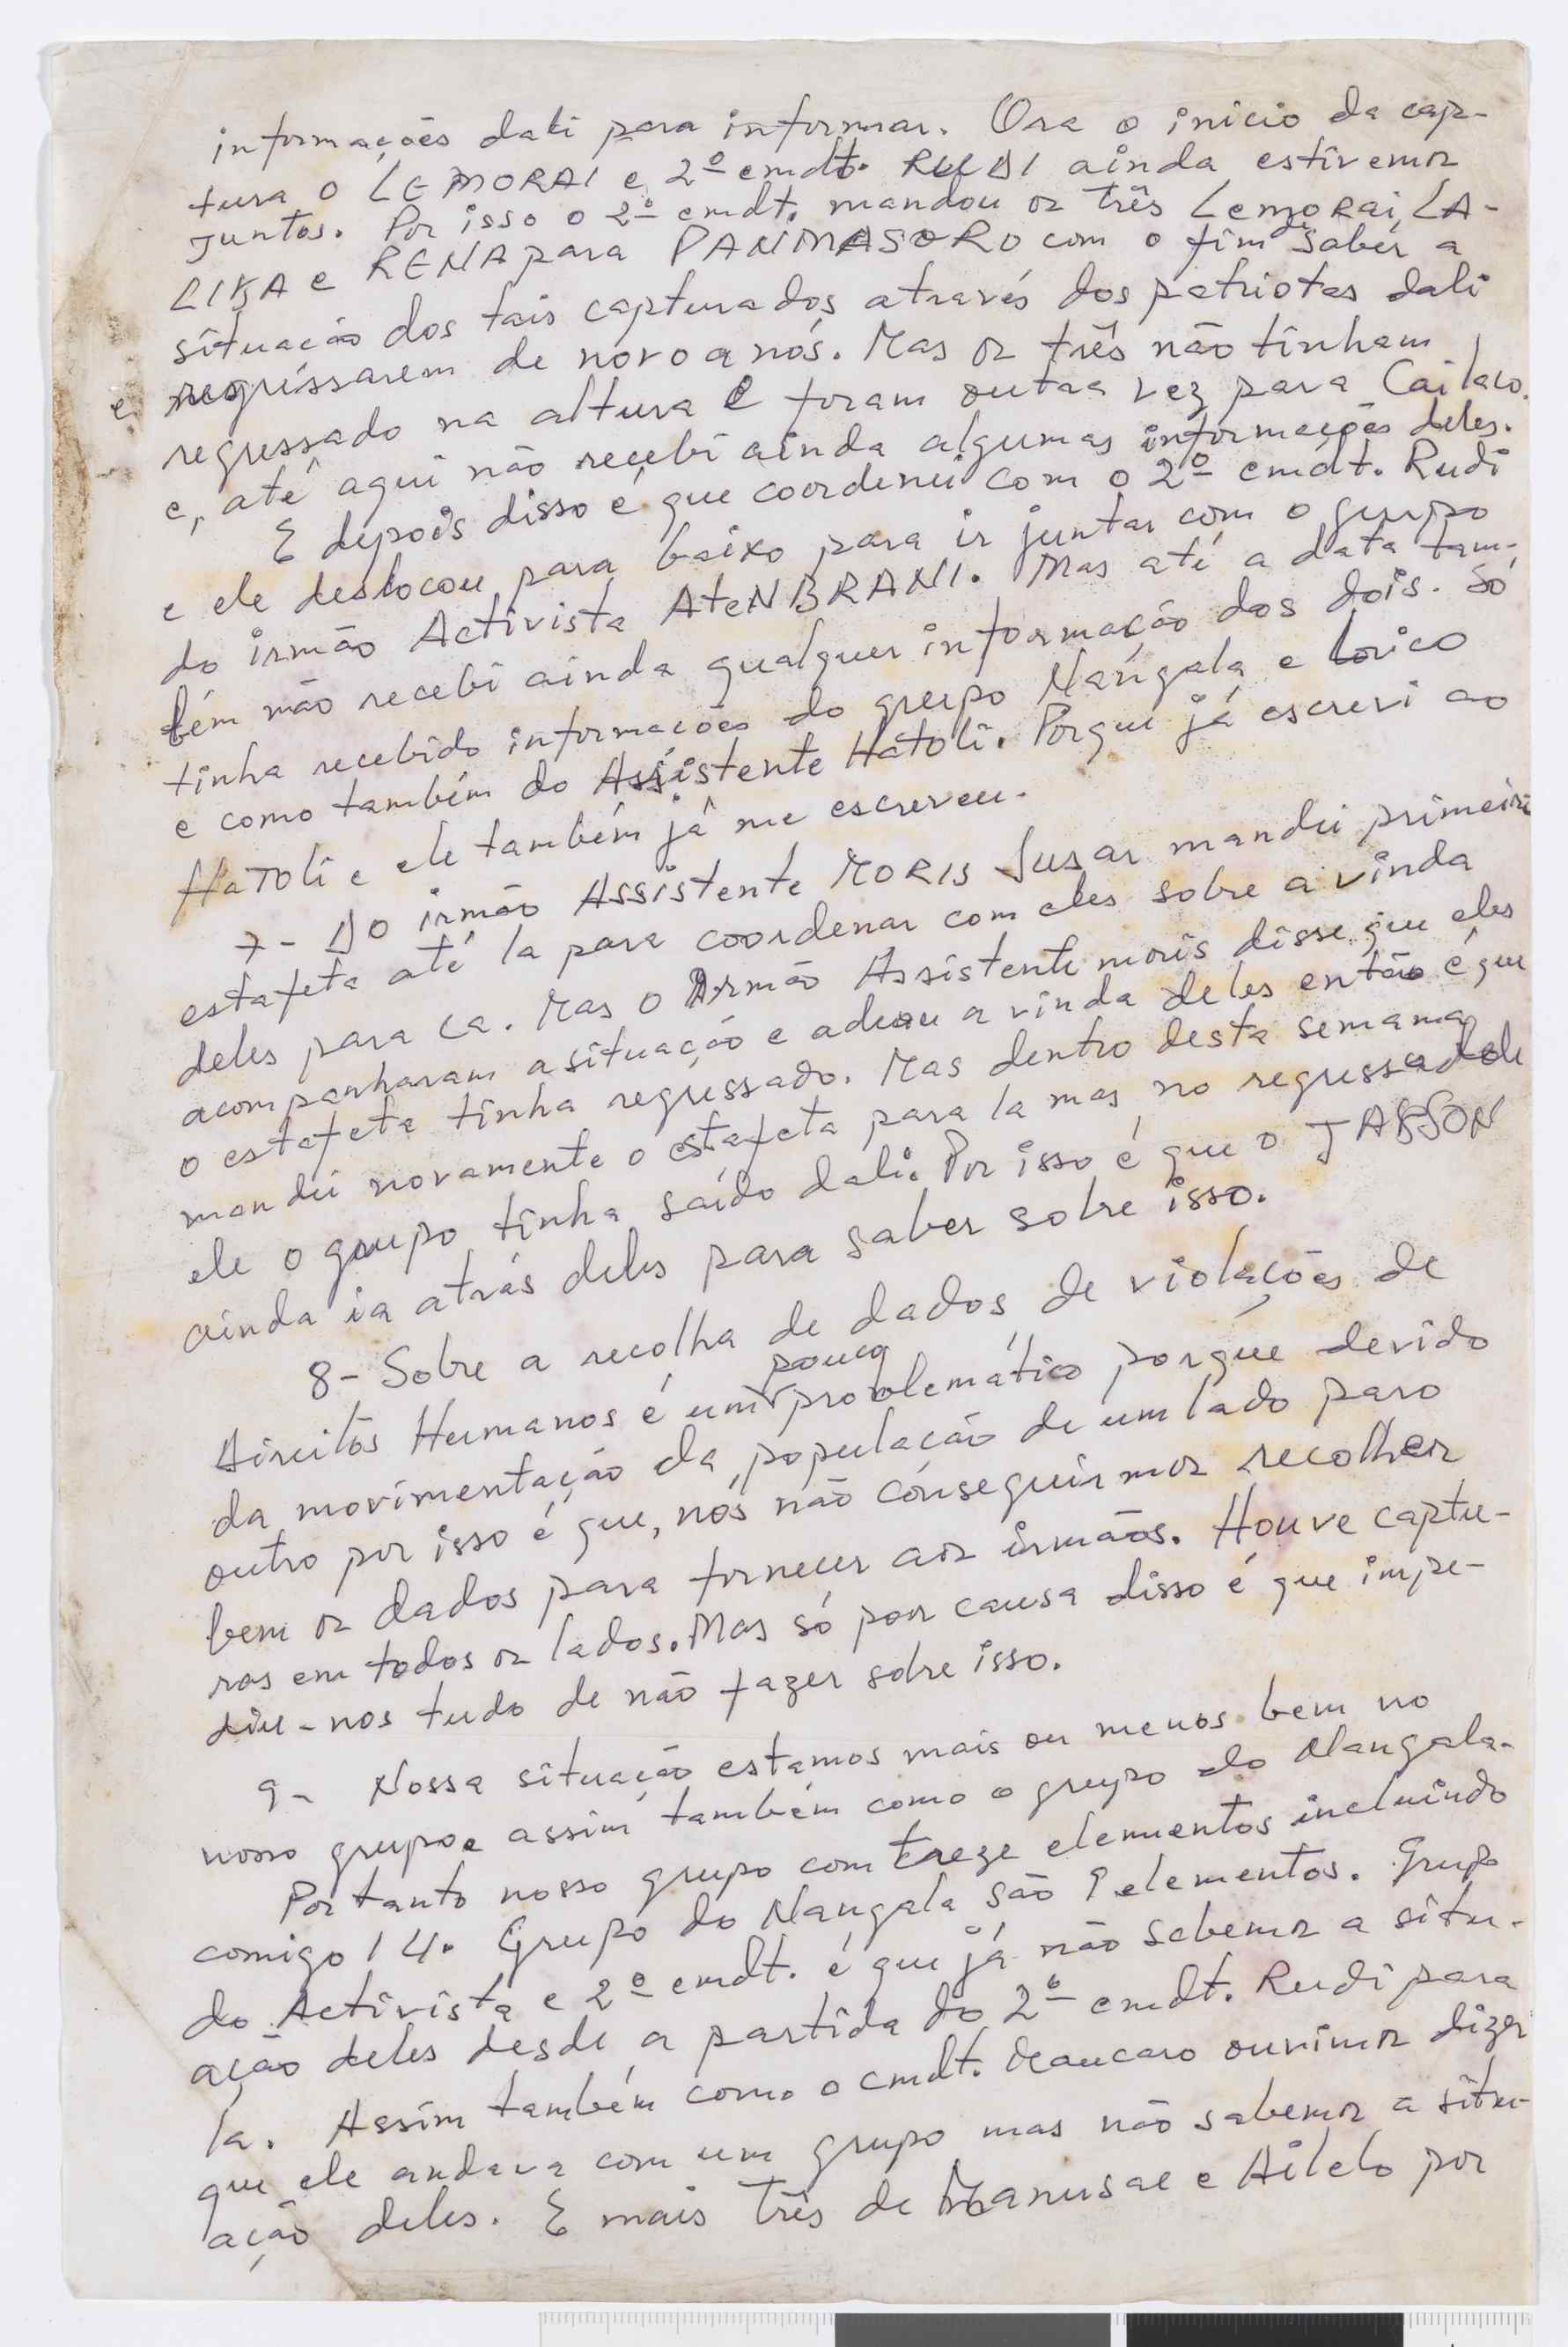 informações dali para informar. Ora o inicio da cap-
tura o LEMORAI e 2º cmdt. RUDI ainda estivemos
juntos. Por isso o 2º cmdt. mandou os três Lemorai, LA-
LIKA e RENA para PANMASORO com o fim de saber a
situação dos tais capturados através dos patriotas dali
e regréssarem de novo a nós. Mas os três não tinham
regressado na altura e foram outra vez para Cailaco.
e, até aqui não recebi ainda algumas informações deles.
E depois disso é que coordenei com o 2º cmdt. Rudi
e ele deslocou para baixo para ir juntar com o grupo
do irmão Activista AteNBRANI. Mas até a data tam-
bém não recebi ainda qualquer informação dos dois. Só
tinha recebido informações do grupo Nangala e Lorico
e como também do Assistente Hatoli. Porque já escrevi ao
HaTOli e ele também já me escreveu.
7- DO irmão Assistente MORIS Susar mandei primeiro
estafeta até la para coordenar com eles sobre a vinda
deles para ca. Mas o Irmão Assistente moris disse que eles
acompanharam a situação e adiou a vinda deles então é que
o estafeta tinha regressado. Mas dentro desta semana
mandei novamente o estafeta para la mas no regresso dele
ele o grupo tinha saído dali. Por isso é que o JAKSON
ainda ia atrás deles para saber sobre isso.
8- Sobre a recolha de dados de violações de
Direitos Humanos é um pouco problemático porque devido
da movimentação da população de um lado para
outro por isso é que, nós não conseguirmos recolher
bem os dados para fornecer aos irmãos. Houve captu-
ras em todos os lados. Mas só por causa disso é que impe-
diu-nos tudo de não fazer sobre isso.
9- Nossa situação estamos mais ou menos bem no
nosso grupo e assim também como o grupo do Nangala.
Portanto nosso grupo com treze elementos incluindo
comigo 14. Grupo do Nangala são 9 elementos. Grupo
do Activista e 2º cmdt. é que já não sabemos a situ-
ação deles desde a partida do 2º cmdt. Rudi para
la. Assim também como o cmdt. Maucaro ouvimos dizer
que ele andava com um grupo mas não sabemos a situ-
ação deles. E mais três de Manusae e Ailelo por